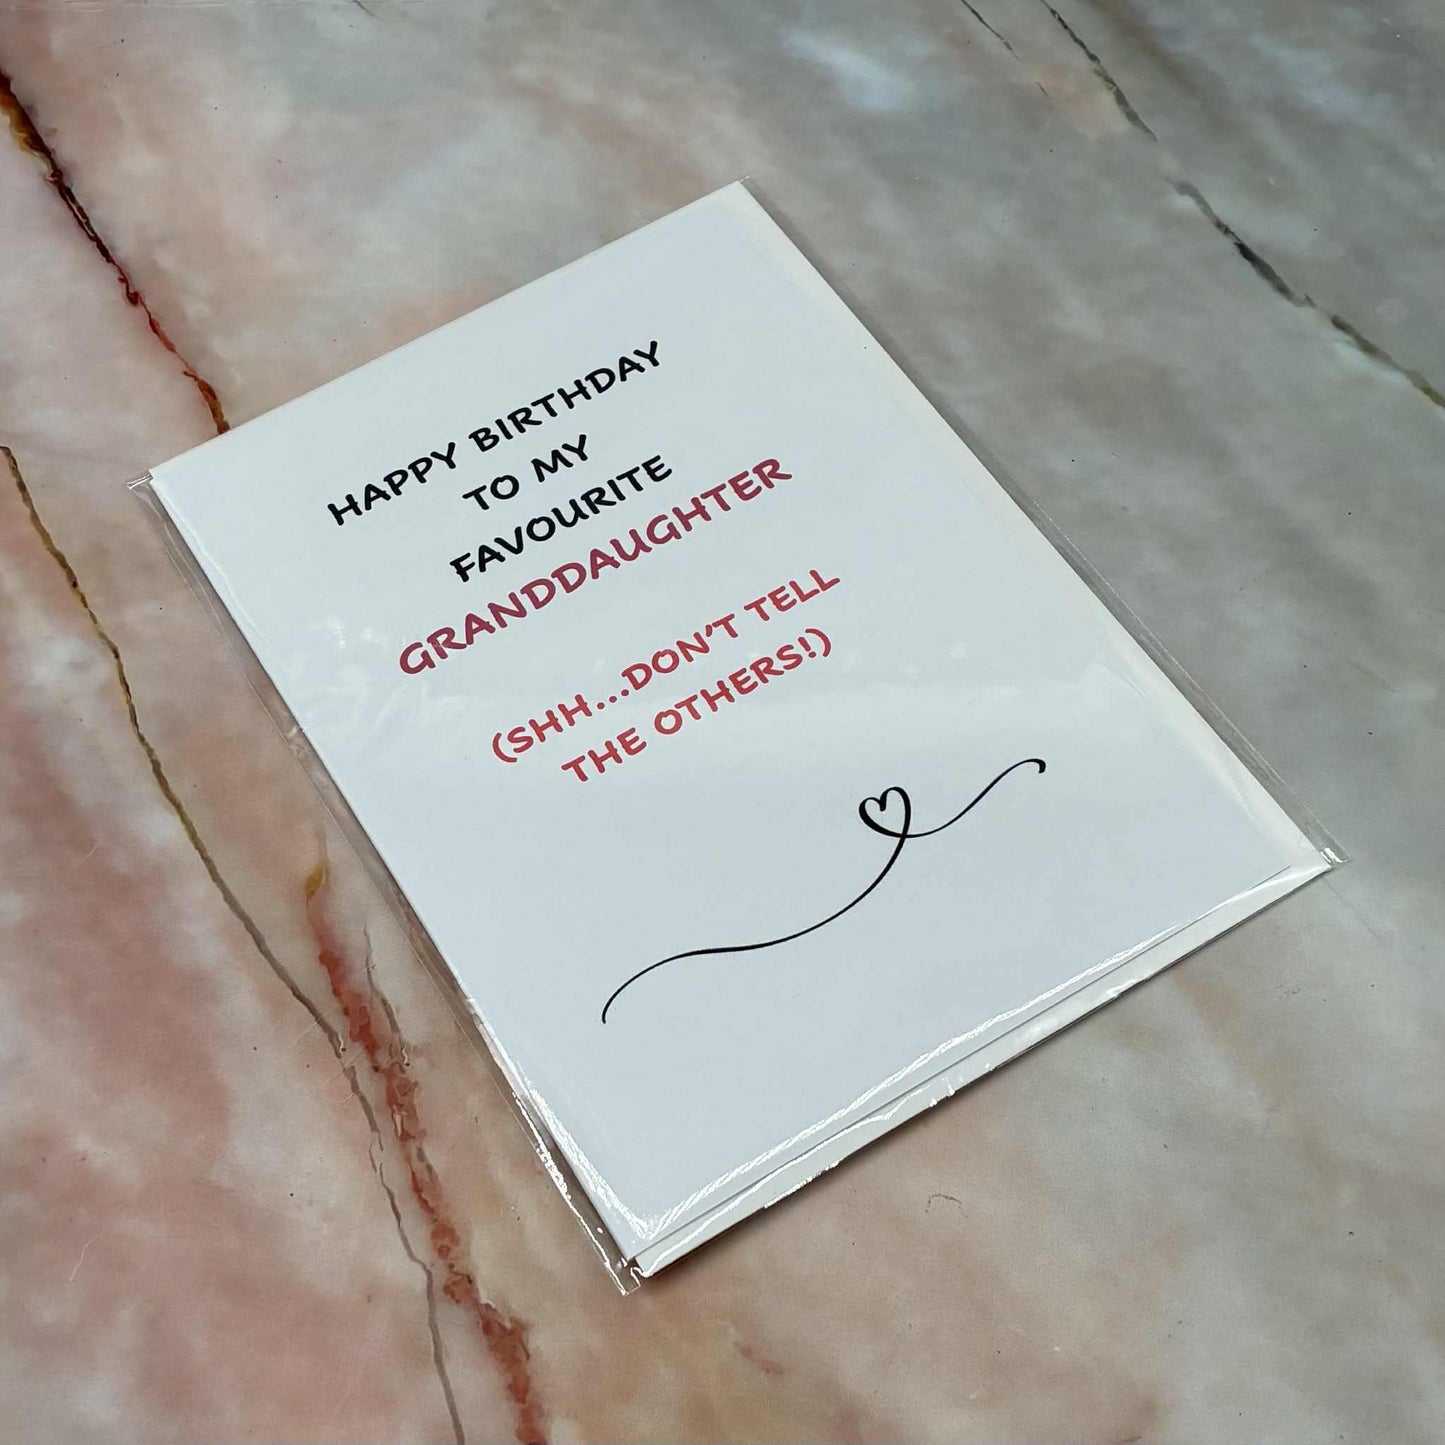 HAPPY BIRTHDAY
TO MY
FAVOURITE
GRANDDAUGHTER
(SHH...DON'T TELL
THE OTHERS!)